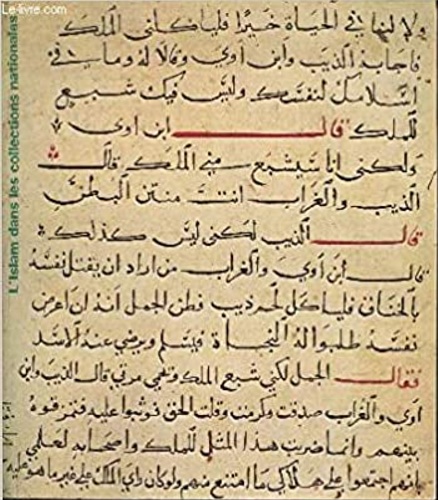 Le-livre.com
L'Islam dans les collections nationales
ولا في الحياة خيرا فلياكلني الملك
فاجابه الذيب وابن اوي وقالا له وما في
اسلامك لنفسك وليس فيك شبع
للملك قال ابن اوى
ولكني انا سيشبع مني الملك قال
الذيب والغراب انت منتن البطن
قال الذيب لكني ليس كذلك
قال ابن اوي والغراب من اراد ان يقتل نفسه
بالخناق فلياكل لحم ذيب فظن الجمل انه ان اعرض
نفسه طلبوا له النجاة فيسلم ويرضي عنه الاسد
فقال الجمل لكني شبع الملك ولحمي مري قال الذيب وابن
اوي والغراب صدقت وكرمت وقلت الحق فوثبوا عليه فمزقوه
بينهم وانما ضربت هذا المثل للملك واصحابه لعلمي
بانهم اجتمعوا على هلاكي ما امتنع منهم ولوكان راي الملك علي غير ما هو عليه